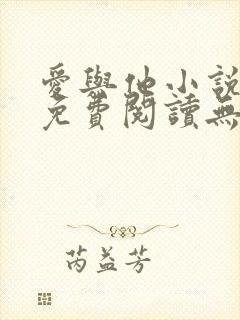 愛與他小說
免費閱讀無
芮益芳